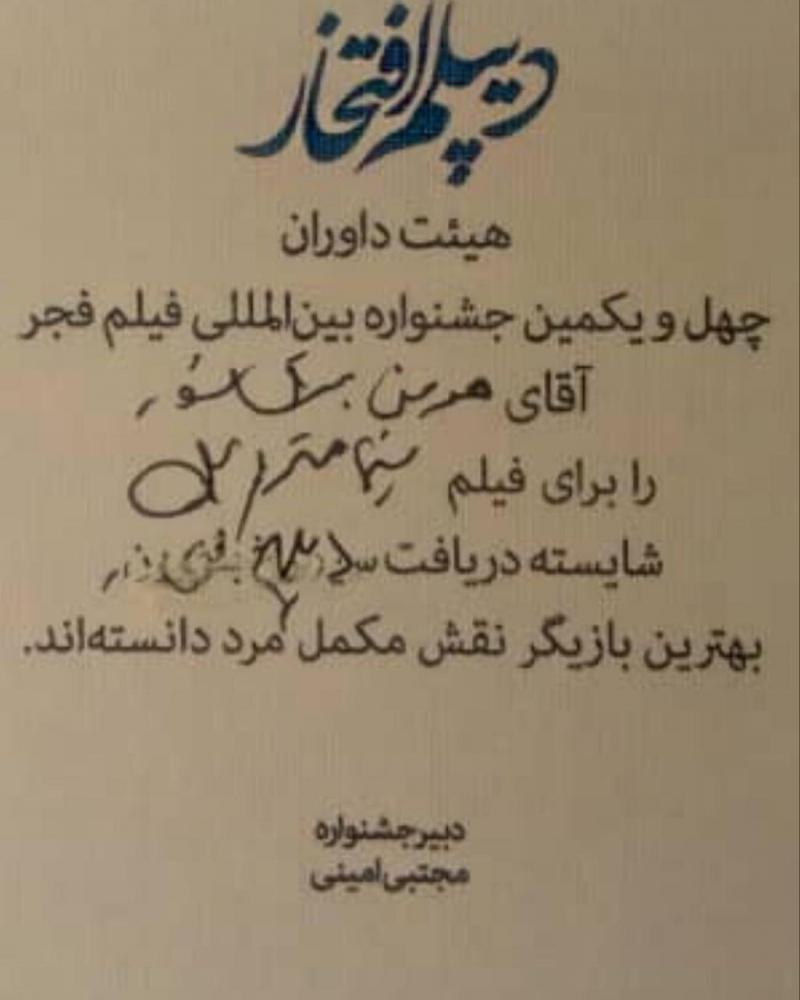 دیپلم افتخار
هیئت داوران
چهل و یکمین جشنواره بین‌المللی فیلم فجر
آقای هومن برق نورد
را برای فیلم سینما متروپل
شایسته دریافت
بهترین بازیگر نقش مکمل مرد دانسته‌اند.
دبیر جشنواره
مجتبی امینی